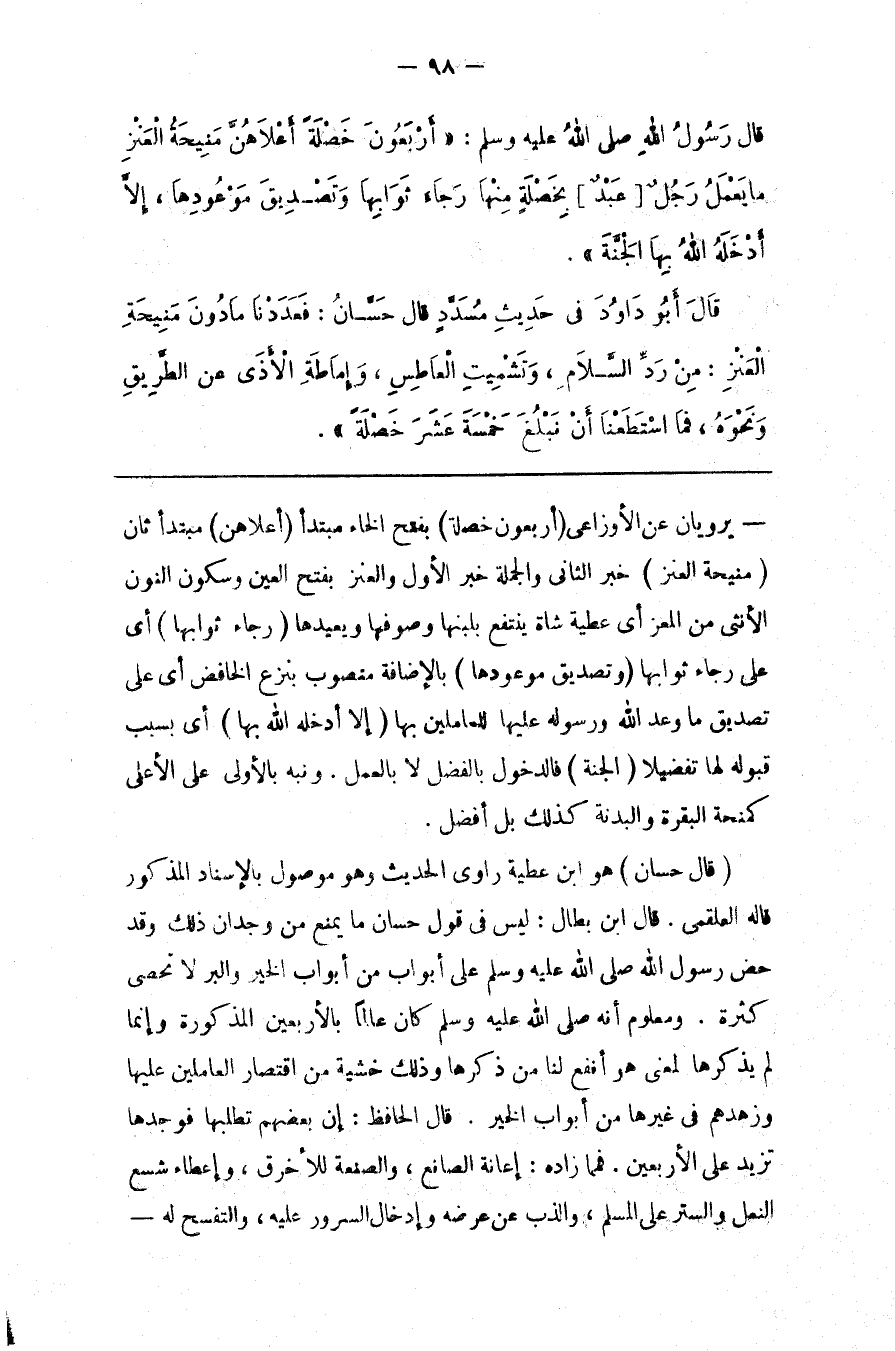 — ٩٨ —
قال رَسُولُ اللهِ صلى اللهُ عليه وسلم : « أَرْبَعُونَ خَصْلَةً أَعْلاَهُنَّ مَنِيحَةُ الْعَنْزِ
ما يَعْمَلُ رَجُلٌ [ عَبْدٌ ] بِخَصْلَةٍ مِنْهَا رَجَاءَ ثَوَابِهاَ وَتَصْـدِيقَ مَوْعُودِهاَ ، إِلاَّ
أَدْخَلَهُ اللهُ بِهاَ الْجَنَّةَ » .
قَالَ أَبُو دَاوُدَ فى حَدِيثِ مُسَدَّدٍ قال حَسَّـانُ : فَعَدَدْنَا مادُونَ مَنِيحَةِ
الْعَنْزِ : مِنْ رَدِّ السَّـلاَمِ ، وَتَشْمِيتِ الْعاَطِسِ ، وَ إِماَطَةِ الْأَذَى عن الطَّرِيقِ
وَنَحْوَهُ ، فما اسْتَطَعْنَا أَنْ نَبْلُغَ خَمْسَةَ عَشَرَ خَصْلَةً » .
— يرويان عن الأوزاعى (أربعون خصلة) بفتح الخاء مبتدأ (أعلاهن) مبتدأ ثان
( منيحة العنز ) خبر الثانى والجملة خبر الأول والعنز بفتح العين وسكون النون
الأنثى من المعز أى عطية شاة ينتفع بلبنها وصوفها ويعيدها ( رجاء ثوابها ) أى
على رجاء ثوابها (وتصديق موعودها ) بالإضافة منصوب بنزع الخافض أى على
تصديق ما وعد الله ورسوله عليها للعاملين بها ( إلا أدخله الله بها ) أى بسبب
قبوله لها تفضيلا ( الجنة ) فالدخول بالفضل لا بالعمل . ونبه بالأولى على الأعلى
كمنحة البقرة والبدنة كذلك بل أفضل .
( قال حسان ) هو ابن عطية راوى الحديث وهو موصول بالإسناد المذكور
قاله العلقمى . قال ابن بطال : ليس فى قول حسان ما يمنع من وجدان ذلك وقد
حض رسول الله صلى الله عليه وسلم على أبواب من أبواب الخير والبر لا تحصى
كثرة . ومعلوم أنه صلى الله عليه وسلم كان عالماً بالأربعين المذكورة وإنما
لم يذكرها لمعنى هو أنفع لنا من ذكرها وذلك خشية من اقتصار العاملين عليها
وزهدهم فى غيرها من أبواب الخير . قال الحافظ : إن بعضهم تطلبها فوجدها
تزيد على الأربعين . فمما زاده : إعانة الصانع ، والصنعة للأخرق ، وإعطاء شسع
النعل والستر على المسلم ، والذب عن عرضه وإدخال السرور عليه ، والتفسح له —